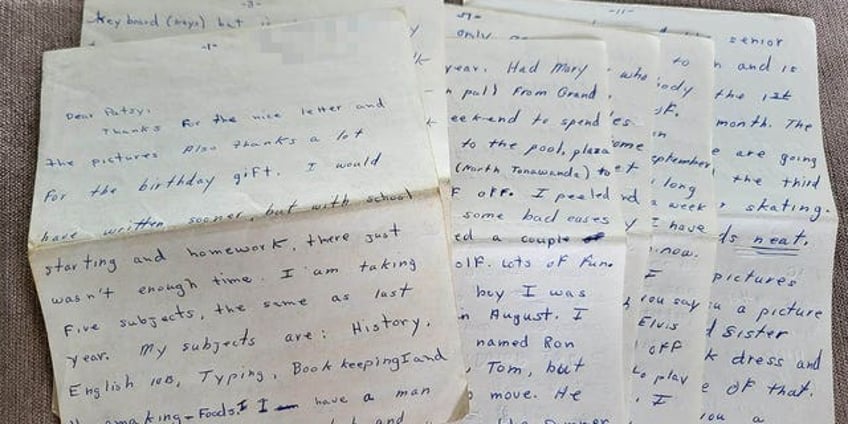 -1-
Dear Patsy,
Thanks for the nice letter and
the pictures Also thanks a lot
for the birthday gift. I would
have written sooner, but with school
starting and homework, there just
wasn't enough time. I am taking
five subjects, the same as last
year. My subjects are: History,
English 10B, Typing, Book keeping I and
making-Foods I I have a man
and
-3-
Key board (keys) but
only
year. Had Mary
pal) From Grand
eekend to spend
to the pool, plaza
(North Tonawanda) to
F off. I peeled
some bad cases
ed a couple
olf. Lots of fun.
boy I was
n August. I
named Ron
, Tom, but
move. He
who
es.
ome
et
nd
to
ody
in
ptember
long
a week
I have
now.
I
you say
Elvis
off
to play
I
-11-
senior
n and is
the 1st
month. The
e are going
the third
skating.
ds neat.
pictures
u a picture
d sister
k dress and
e of that.
you a